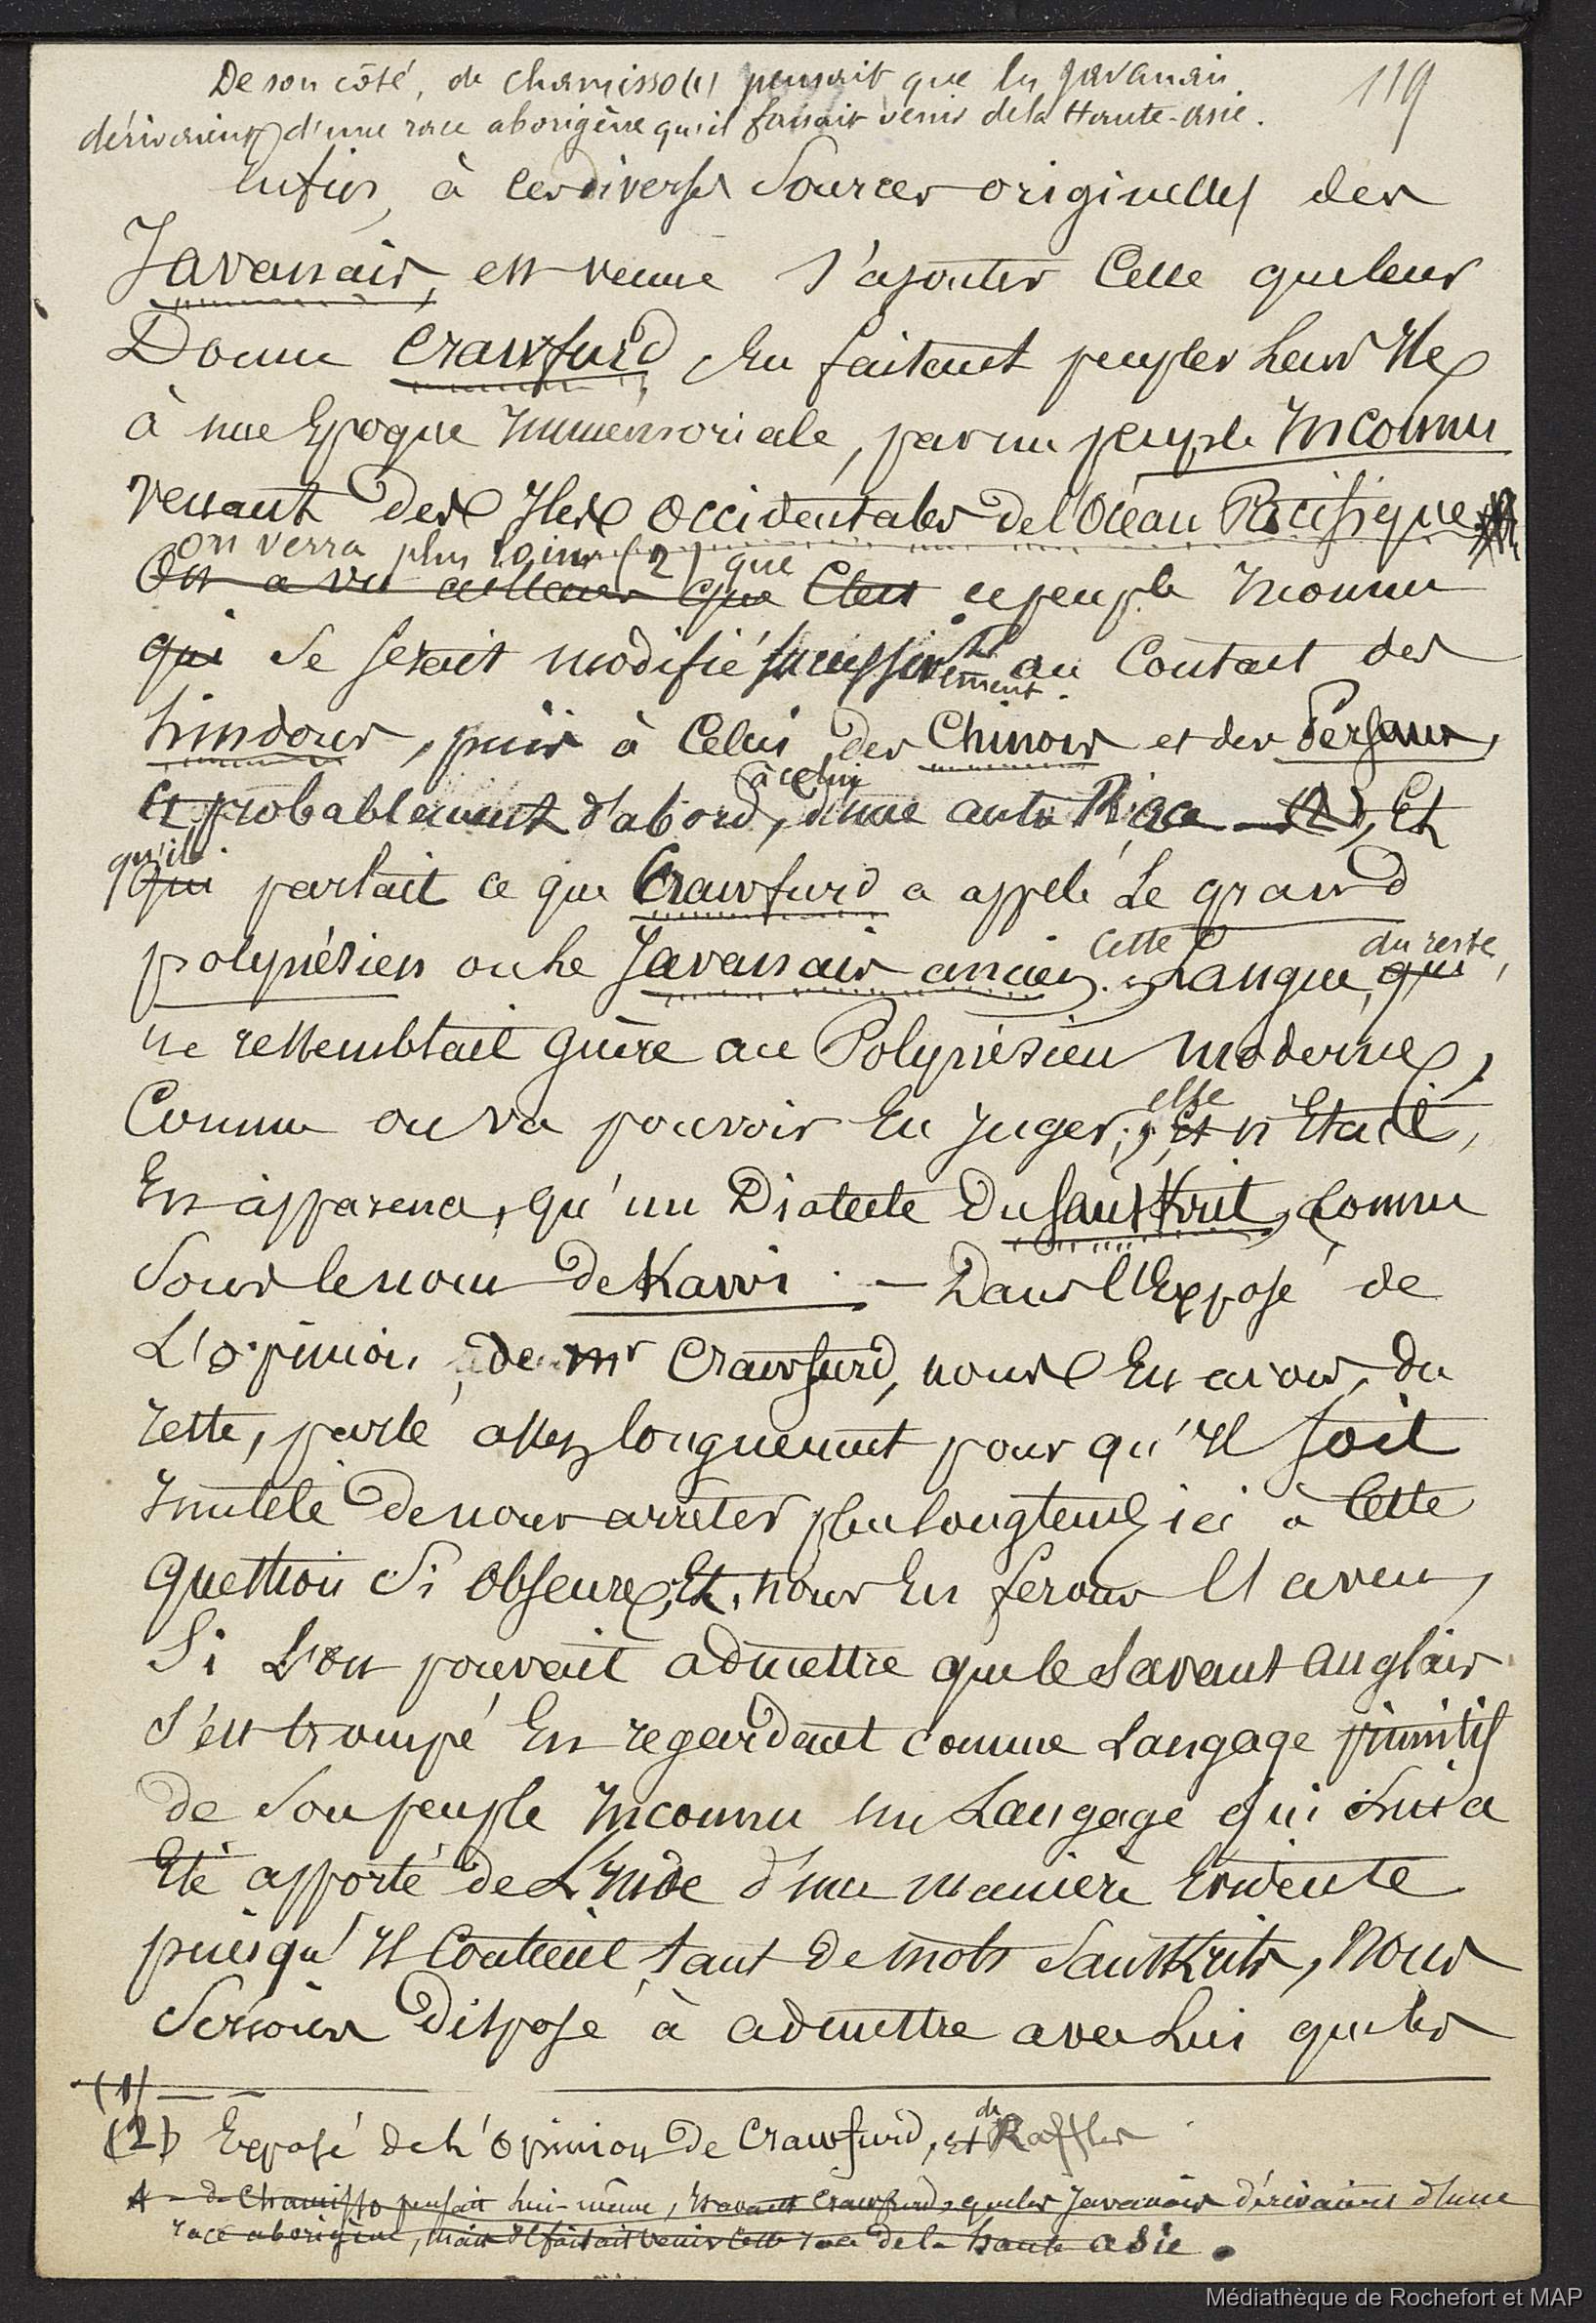 De son côté, de Chamisso (1) pensait que les Javanais
119
dérivaient d'une race aborigène qu'il faisait venir de la Haute-Asie.
Enfin, à ces diverses Sources originelles des
Javanais, est venue s'ajouter Celle que leur
Donne Crawfurd, En faisant peupler Leur Ile
à une Epoque Immémoriale, par un peuple Inconnu
venant des Iles Occidentales de l'Océan Pacifique
on verra plus loin (2) que
On a vu ailleurs que C'est ce peuple Inconnu
qui Se serait modifié successivement au Contact des
hindous, puis à Celui des Chinois et des Persans,
Et probablement d'abord, à celui d'une autre Race (2), Et
qu'il
qui parlait ce que Crawfurd a appelé Le grand
polynésien ou Le Javanais ancien. Cette Langue, qui du reste,
ne ressemblait guère au Polynésien moderne,
Comme on va pouvoir En Juger; elle Et n'Etait,
En apparence, qu'un Dialecte Du Sanskrit, Connu
Sous le nom de Kawi. — Dans l'Exposé de
L'opinion de Mr Crawfurd, nous En avons, du
reste, parlé assez longuement pour qu'Il soit
Inutile de nous arrêter plus longtems ici à Cette
question Si Obscure, Et, nous En ferons l'aveu,
Si L'on pouvait admettre que le Savant anglais
S'est trompé En regardant comme Langage primitif
de Son peuple Inconnu un Langage qui Lui a
Eté apporté de L'Inde d'une manière Evidente
puisqu'Il Contient tant de mots Sanskrits, Nous
Serions Disposé à admettre avec Lui que les
(1) —
(2) Exposé de L'Opinion de Crawfurd, et de Raffles
A - de Chamisso pensait lui-même, avant Crawfurd, que les Javanais dérivaient d'une
race aborigène, mais Il faisait venir cette race de la haute asie.
Médiathèque de Rochefort et MAP